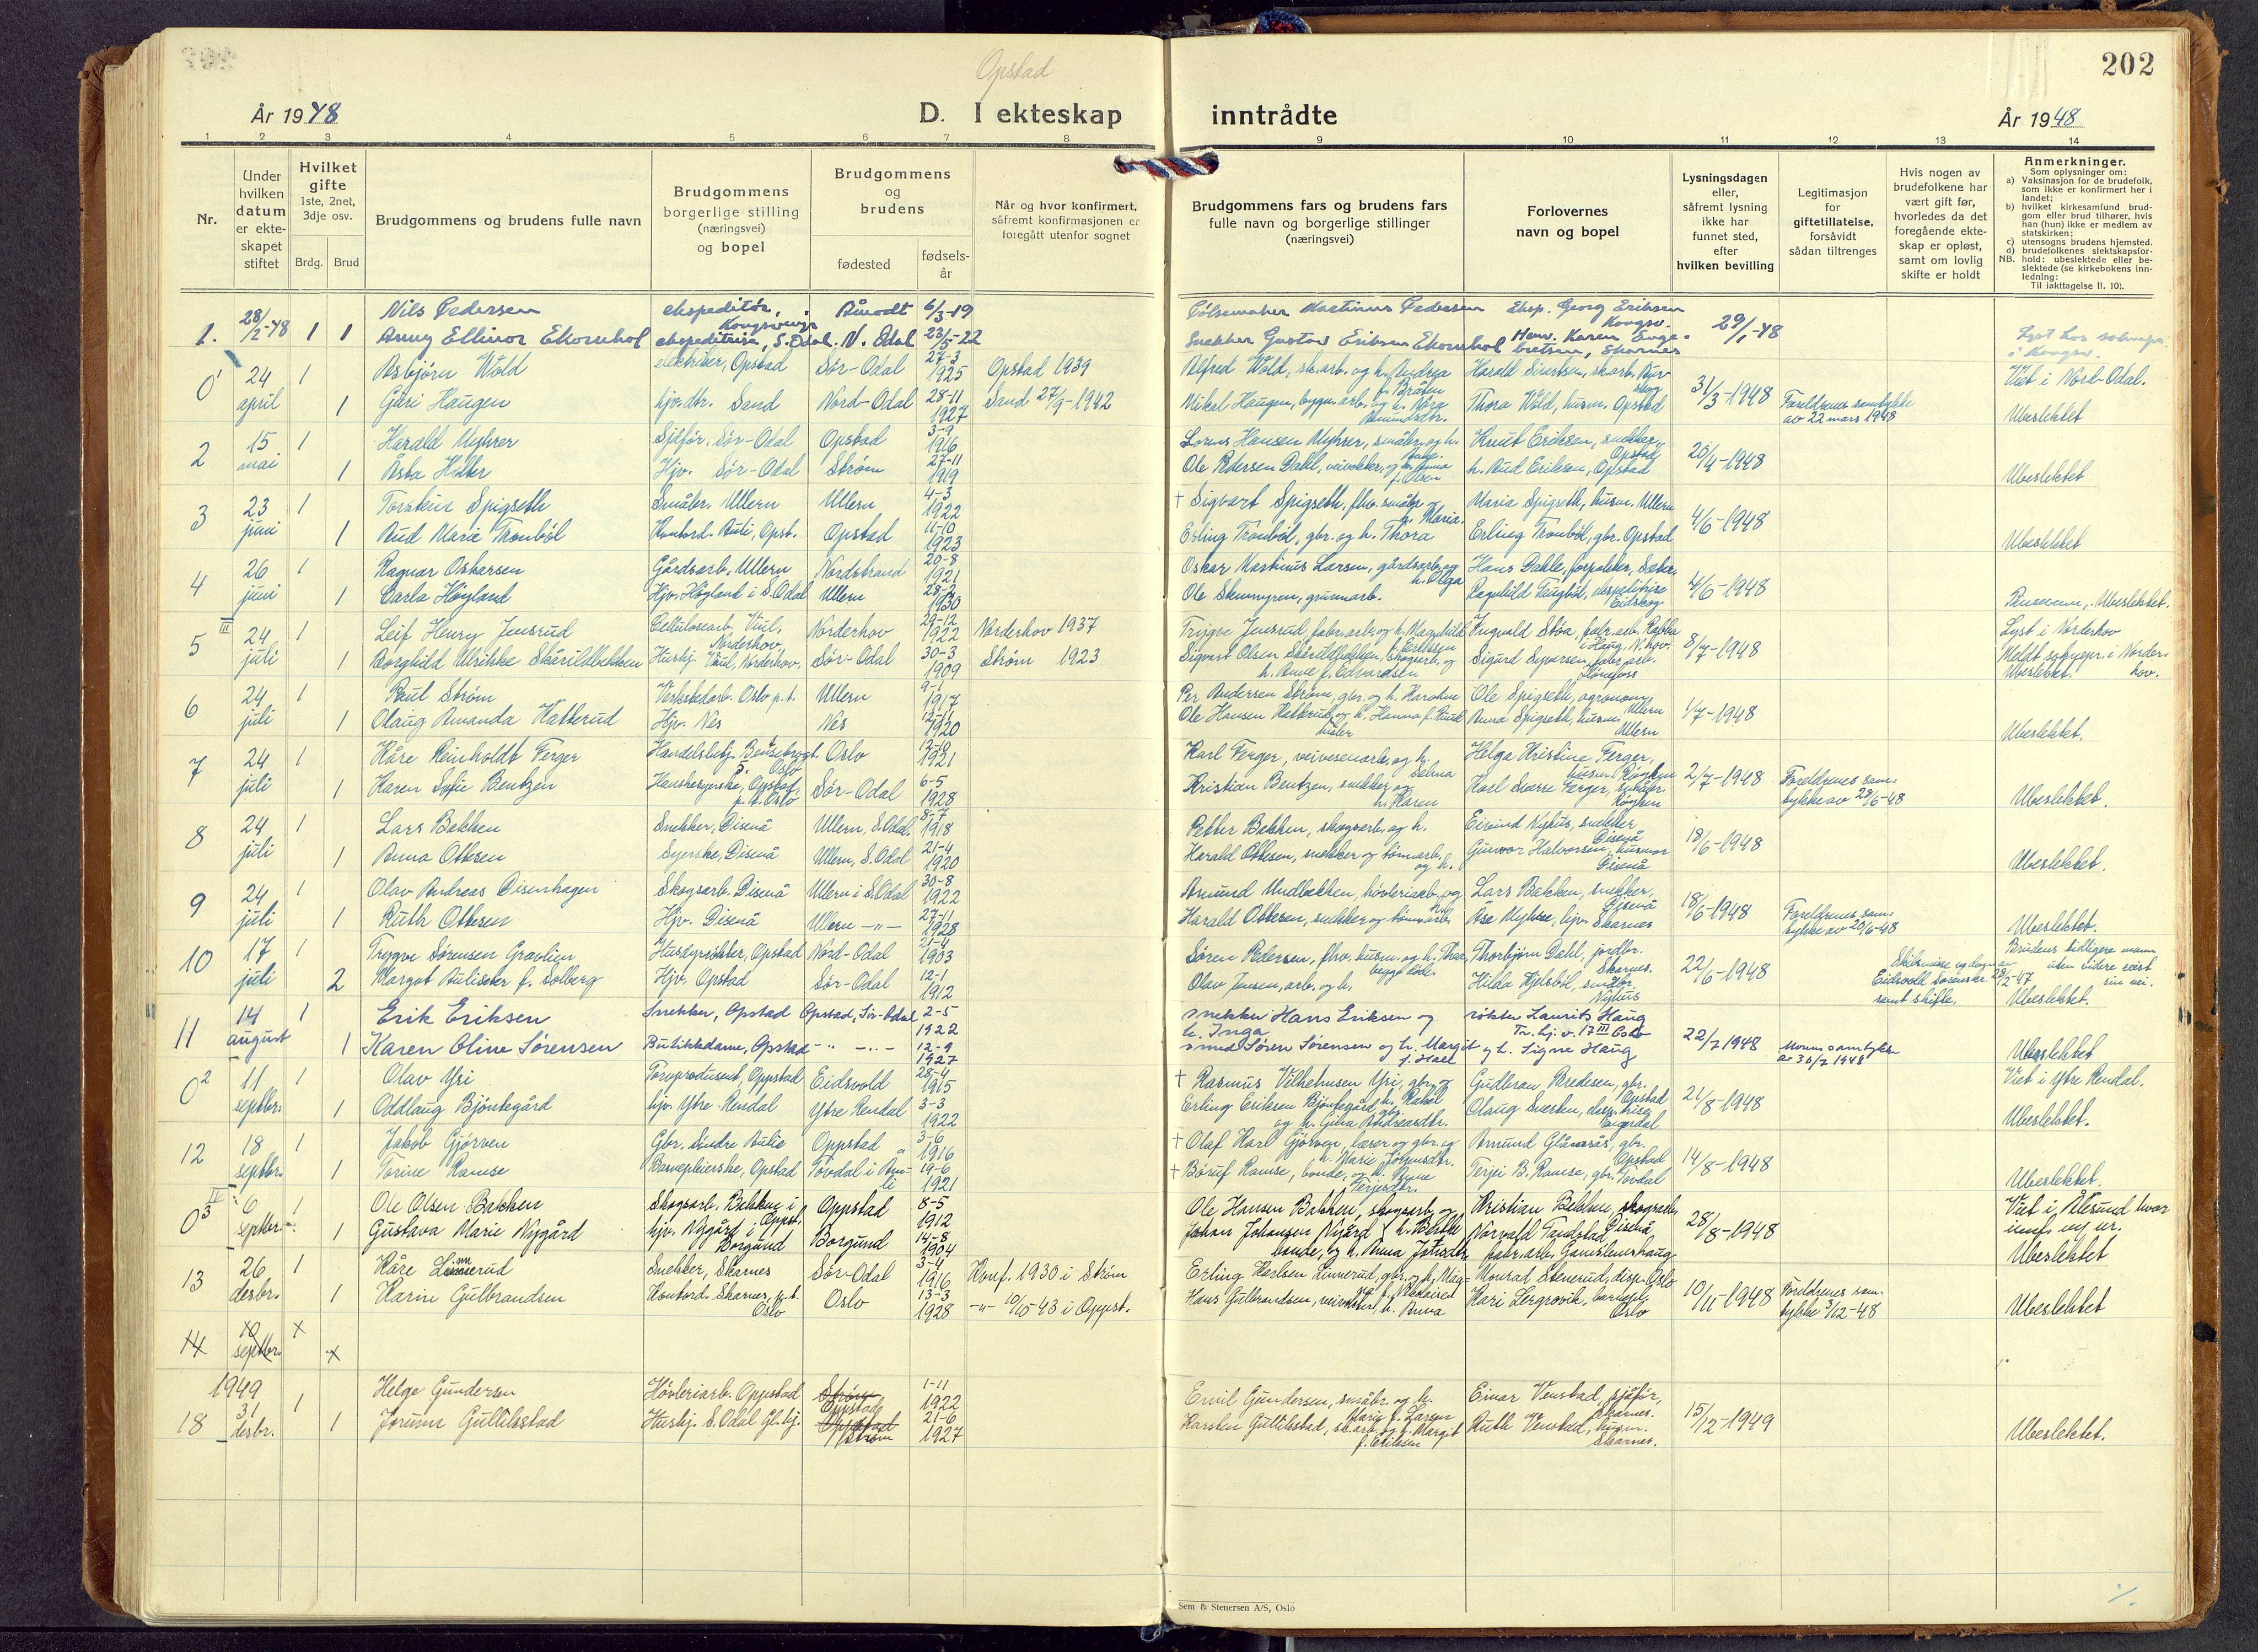 Opstad
202
År 1948
D. I ekteskap inntrådte
År 1948
1 2 3 4 5 6 7 8 9 10 11 12 13 14
Nr.
Under hvilken datum er ekteskapet stiftet
Hvilket gifte 1ste, 2net, 3dje osv.
Brdg. Brud
Brudgommens og brudens fulle navn
Brudgommens borgerlige stilling (næringsvei) og bopel
Brudgommens og brudens
fødested
fødsels-år
Når og hvor konfirmert, såfremt konfirmasjonen er foregått utenfor sognet
Brudgommens fars og brudens fars fulle navn og borgerlige stillinger (næringsvei)
Forlovernes navn og bopel
Lysningsdagen eller, såfremt lysning ikke har funnet sted, efter hvilken bevilling
Legitimasjon for giftetillatelse, forsåvidt sådan tiltrenges
Hvis nogen av brudefolkene har vært gift før, hvorledes da det foregående ekteskap er opløst, samt om lovlig skifte er holdt
Anmerkninger.
Som oplysninger om:
a) Vaksinasjon for de brudefolk, som ikke er konfirmert her i landet;
b) hvilket kirkesamfund brudgom eller brud tilhører, hvis han (hun) ikke er medlem av statskirken;
c) utensogns brudens hjemsted.
d) brudefolkenes slektskapsforhold: ubeslektede eller beslektede (se kirkebokens innledning:
NB.
Til iakttagelse II. 10).
1. 28/2-48 1 1 Nils Pedersen ekspeditør, Kongsvinger Åmodt 6/3-19
Anny Ellinor Ekornhol ekspeditrise, S. Odal. N. Odal 23/5-22
Pølsemaker Martinus Pedersen Eksp. Georg Eriksen Kongsv.
Snekker Gustav Eriksen Ekornhol 29/1-48
0 1 24 april 1 Asbjørn Wold elektriker, Opstad Sør-Odal 27-3 1925 Opstad 1939
1 Gåri Haugen hjv.dtr. Sand Nord-Odal 28-11 1927 Sand 27/9-1942
Alfred Wold, sk.arb. og h. Andrea f. Bråten
Mikal Haugen, bygn.arb. og h. Nora Thora Wold, husm. Opstad
31/3-1948 Foreldrenes samtykke av 22 mars 1948 Viet i Nord-Odal. Ubeslektet
2 15 mai 1 Harald Myhrer Sjåfør, Sør-Odal Opstad 3-9 1916
1 Åsta Hitter Hjv. Sør-Odal Strøm 27-11 1919
Lorens Hansen Myhrer, småbr. og h. Knut Eriksen, snekker, Opstad
Ole Petersen Dahl, veivokter, og h. Anna f. Olsen h. Aud Eriksen, Opstad
20/4-1948 Ubeslektet
3 23 juni 1 Torstein Spigseth Småbr. Ullern Ullern 4-3 1922
1 Aud Marie Trønbøl Kontord. Auli, Opst. Opstad 11-10 1923
† Sigvart Spigseth, fhv. småbr. og h. Maria. Maria Spigseth, husm. Ullern
Erling Trønbøl, gbr. og h. Thora Erling Trønbøl, gbr. Opstad
4/6-1948 Ubeslektet
4 26 juni 1 Ragnar Oskarsen Gårdsarb. Ullern Nordstrand 20-8 1921
1 Carla Høgland Hjv. Høgland i S. Odal Ullern 1930
Oskar Martinus Larsen, gårdsarb. og h. Olga Hans Dahle, forpakter,
Ole Skinnyren, grünnarb. Ragnhild Teigbøl, ekspeditrise Eidskog
4/6-1948 Ubeslektet.
5 24 juli 1 Leif Henry Jensrud Cellulosearb. Viul, Norderhov Norderhov 29-12 1922 Norderhov 1937
1 Borghild Ulrikke Skårildbekken Hushj. Viul, Norderhov. Sør-Odal 30-3 1909 Strøm 1923
Trygve Jensrud, fabr.arb. og h. Magnhild f. Ingvald Støa, fabr.arb.
Sigvart Olsen Skårildbekken, skogsarb. og h. Anne f. Edvardsen Sigurd Syversen, fabr.arb. Hønefoss
8/7-1948 Lyst i Norderhov Meldt i Norderhov. Ubeslektet.
6 24 juli 1 Paul Strøm Verkstedarb. Oslo p.t. Ullern 9-1 1917
1 Olaug Amanda Hatterud Hjv. Nes Nes 12-11 1920
Per Andersen Strøm, gbr. og h. Karoline Ole Spigseth, agronom, Ullern
Ole Hansen Hatterud og h. Hanna f. Ruud Anna Spigseth, husm. Ullern
1/7-1948 Ubeslektet.
7 24 juli 1 Kåre Reinholdt Ferger Oslo 12-10 1921
1 Karen Sofie Bentzen Hanskesyerske, Opstad, p.t. Oslo Sør-Odal 6-5 1928
Karl Ferger, veivesenarb. og h. Selma Helga Kristine Ferger, husm. Røyken
Kristian Bentzen, snekker og h. Karen Karl Ferger, sjåfør Røyken
2/7-1948 Foreldrenes samtykke av 28/6-48 Ubeslektet.
8 24 juli 1 Lars Bekken Snekker, Disenå Ullern, S. Odal 8-7 1918
1 Anna Ottesen Syerske, Disenå Ullern, S. Odal 21-4 1920
Petter Bekken, skogsarb. og h. Eivind Nyhus, snekker Disenå
Harald Ottesen, snekker og tømm.arb. og h. Gunvor Halvorsen, husmor Disenå
18/6-1948 Ubeslektet.
9 24 juli 1 Olav Andreas Disenhagen Skogsarb. Disenå Ullern i S. Odal 30-8 1922
1 Ruth Ottesen Hjv. Disenå Ullern -"- 27-11 1928
Amund Undbekken, høvleriarb. og h. Lars Bekken, snekker, Disenå
Harald Ottesen, snekker og tømm.arb. Åse Myhre, hjv. Skarnes
18/6-1948 Foreldrenes samtykke av 20/6-48 Ubeslektet.
10 17 juli 1 Trygve Sørensen Gravlien Opstad Nord-Odal 21-4 1903
2 Margot Aulisæter f. Solberg Hjv. Opstad Sør-Odal 12-1 1912
Søren Pedersen, fhv. husm. og h. Thea, begge døde. Thorbjørn Dahl, jordbr. Skarnes.
Olav Jensen, arb. og h. Hilda Kjelsbøl, småbr. Nyhus
22/6-1948 Eidsvoll 28/2-47 samt skifte. Brudens tidligere mann uten videre reist sin vei. Ubeslektet.
11 14 august 1 Erik Eriksen Snekker, Opstad Opstad, Sør-Odal 2-5 1922
1 Karen Oline Sørensen Butikkdame, Opstad -"- -"- 12-9 1927
snekker Hans Eriksen og h. Inga røkter Laurits Haug Tr. hj. v. 17 III Oslo
smed Søren Sørensen og h. Margit f. Hael og h. Signe Haug
22/7 1948 Morens samtykke av 30/7 1948 Ubeslektet
0 2 11 septbr. 1 Olav Yri Torvprodusent, Oppstad Eidsvold 28-4 1915
1 Oddlaug Bjøntegård hjv. Ytre Rendal Ytre Rendal 3-3 1922
† Rasmus Vilhelmsen Yri, gbr. og h. Rakel Gudbran Bredesen, gbr. Opstad
Erling Eriksen Bjøntegård, gbr. og h. Gina Andreasdtr. Olaug Snerten,
21/8-1948 Viet i Ytre Rendal. Ubeslektet.
12 18 septbr. 1 Jakob Gjørven Gbr. Sindre Aulie Oppstad 3-6 1916
1 Torine Ramse Barnepleierske, Opstad Tovdal i Åmli 19-6 1921
† Olaf Karl Gjørven, lærer og gbr. og h. Marie Jørgensdtr. Amund Glåmsås, gbr. Opstad
† Børuf Ramse, bonde, og h. Anne Terjesdtr. Terjei B. Ramse, gbr. Tovdal
14/8-1948 Ubeslektet.
0 3 6 septbr. 1 Ole Olsen Bakken Skogsarb. Bekken i Oppst. Oppstad 8-5 1912
1 Gustava Marie Nygård hjv. Nygård i Borgund Borgund 14-8 1904
Ole Hansen Bakken, skogsarb. og h. Berthe Kristian Bekken, skogsarb. Disenå
Johan Johansen Nygård, bonde, og h. Anna Norvald Tandstad, fabr.arb.
28/8-1948 Viet i Ålesund hvor innf. ny nr. Ubeslektet
13 26 desbr. 1 Kåre Linnerud Snekker, Skarnes Sør-Odal 3-4 1916 Konf. 1930 i Strøm
1 Karin Gulbrandsen Kontord. Skarnes, p.t. Oslo Oslo 13-3 1928 -"- 10/10-43 i Oppst.
Erling Karlsen Linnerud, gbr. og h. Konrad Stenerud, disp. Oslo
Hans Gulbrandsen, h. Anna Kari Lergrovik, Oslo
10/11-1948 Foreldrenes samtykke 3/12-48 Ubeslektet
14 10 septbr. x x
1949
18 31 desbr. 1 Helge Gundersen Høvleriarb. Oppstad Strøm Oppstad 1-11 1922
1 Jorunn Gullikstad Hushj. S. Odal Gl.hj. Oppstad Strøm 21-6 1927
Emil Gundersen, småbr. og h. Marie f. Larsen Einar Venstad, sjåfør, Skarnes.
Karsten Gullikstad, sk.arb. og h. Margit f. Eriksen Ruth Venstad, husm. Skarnes.
15/12-1949 Ubeslektet.
Sem & Stenersen A/S, Oslo